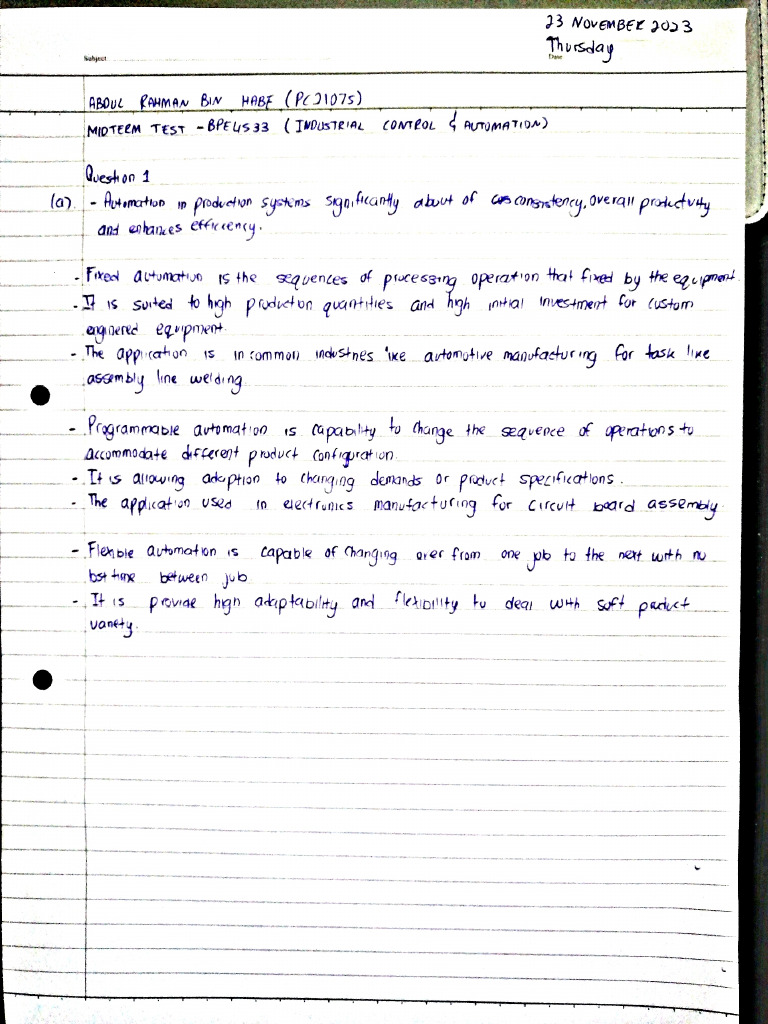 23 NOVEMBER 2023
Thursday
Subject
Date
ABDUL RAHMAN BIN HABE (PC21075)
MIDTERM TEST - BPE4533 (INDUSTRIAL CONTROL & AUTOMATION)
Question 1
(a) - Automation in production systems significantly about of consistency, overall productivity
and enhances efficiency.
- Fixed automation is the sequences of processing operation that fixed by the equipment.
- It is suited to high production quantities and high initial investment for custom
enginered equipment.
- The application is in common industries like automotive manufacturing for task like
assembly line welding
- Programmable automation is capability to change the sequence of operations to
accommodate different product configuration
- It is allowing adaption to changing demands or product specifications.
- The application used in electronics manufacturing for circuit board assembly
- Flexible automation is capable of changing over from one job to the next with no
lost time between job
- It is provide high adaptability and flexibility to deal with soft product
variety.